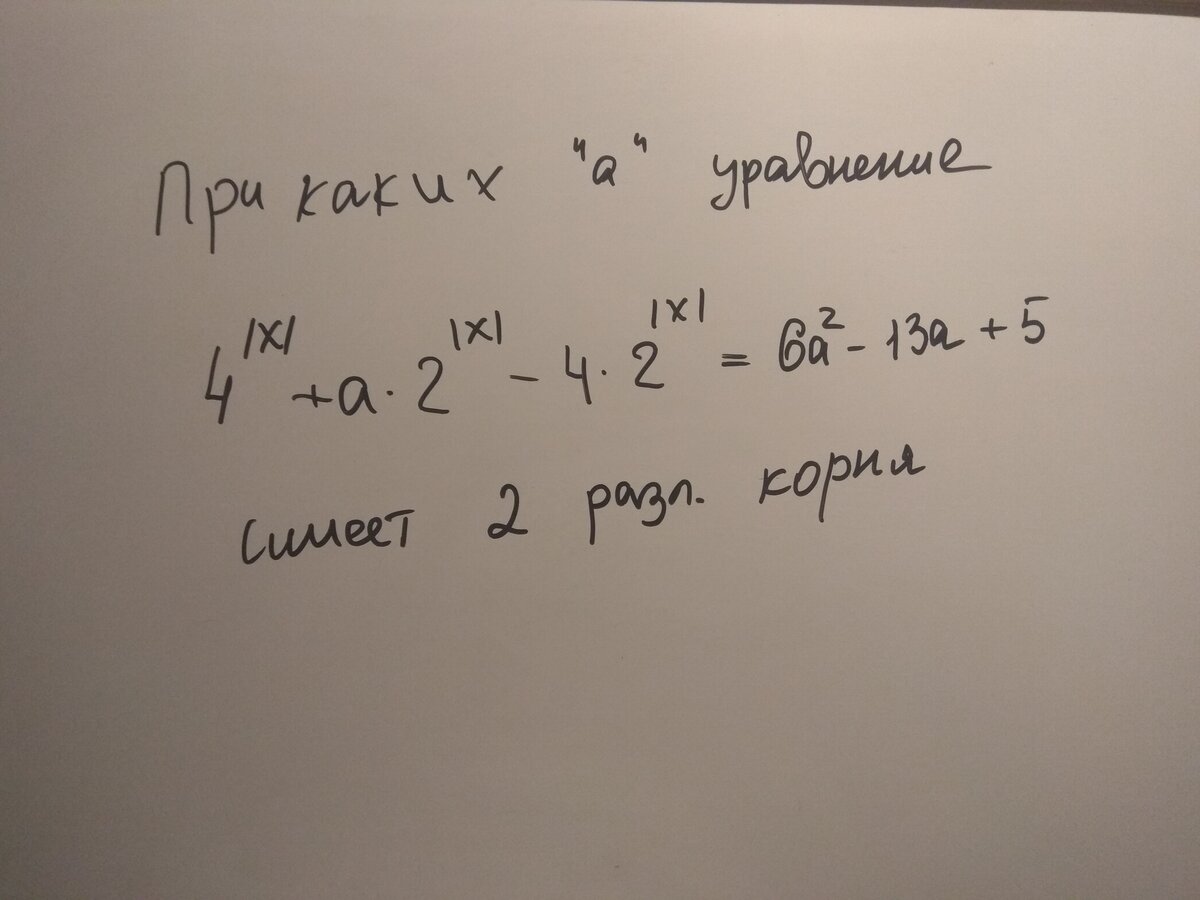 При каких "а" уравнение
4^|x| + a · 2^|x| - 4 · 2^|x| = 6a² - 13a + 5
имеет 2 разл. корня